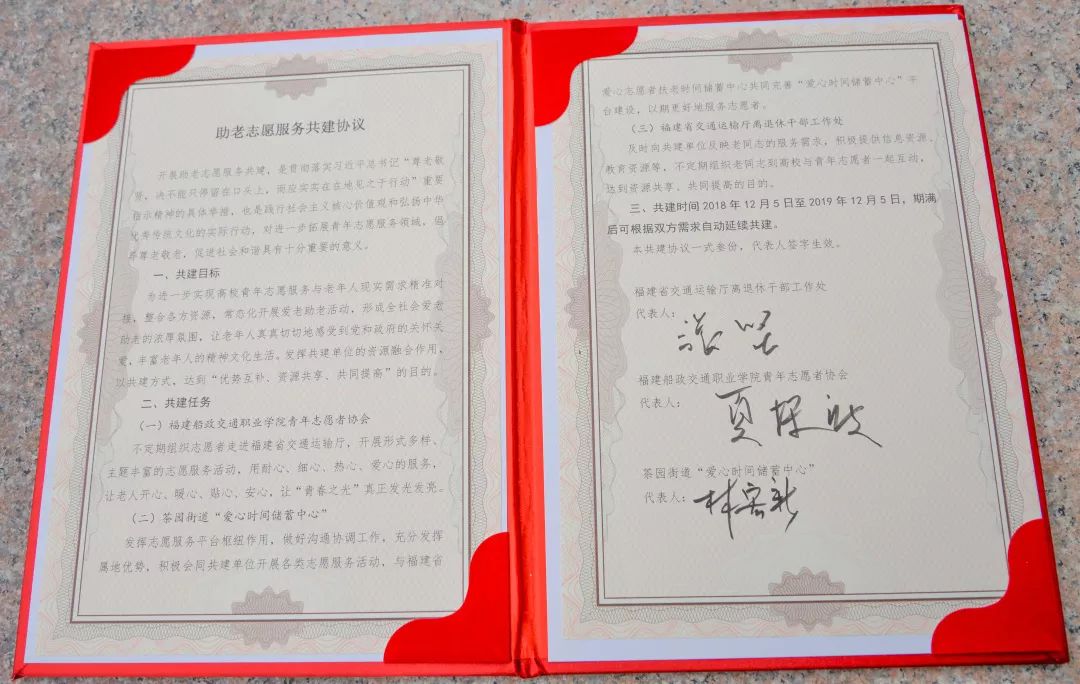 助老志愿服务共建协议
开展助老志愿服务共建，是贯彻落实习近平总书记“尊老敬
贤，决不能只停留在口头上，而应实实在在地见之于行动”重要
指示精神的具体举措，也是践行社会主义核心价值观和弘扬中华
优秀传统文化的实际行动，对进一步拓展青年志愿服务领域，倡
导尊老敬老，促进社会和谐具有十分重要的意义。
一、共建目标
为进一步实现高校青年志愿服务与老年人现实需求精准对
接，整合各方资源，常态化开展爱老助老活动，形成全社会爱老
助老的浓厚氛围，让老年人真真切切地感受到党和政府的关怀关
爱，丰富老年人的精神文化生活。发挥共建单位的资源融合作用，
以共建方式，达到“优势互补、资源共享、共同提高”的目的。
二、共建任务
（一）福建船政交通职业学院青年志愿者协会
不定期组织志愿者走进福建省交通运输厅，开展形式多样、
主题丰富的志愿服务活动，用耐心、细心、热心、爱心的服务，
让老人开心、暖心、贴心、安心，让“青春之光”真正发光发亮。
（二）茶园街道“爱心时间储蓄中心”
发挥志愿服务平台枢纽作用，做好沟通协调工作，充分发挥
属地优势，积极会同共建单位开展各类志愿服务活动，与福建省
爱心志愿者扶老时间储蓄中心共同完善“爱心时间储蓄中心”平
台建设，以期更好地服务志愿者。
（三）福建省交通运输厅离退休干部工作处
及时向共建单位反映老同志的服务需求，积极提供信息资源、
教育资源等，不定期组织老同志到高校与青年志愿者一起互动，
达到资源共享、共同提高的目的。
三、共建时间 2018 年 12 月 5 日至 2019 年 12 月 5 日，期满
后可根据双方需求自动延续共建。
本共建协议一式叁份，代表人签字生效。
福建省交通运输厅离退休干部工作处
代表人：
福建船政交通职业学院青年志愿者协会
代表人：
茶园街道“爱心时间储蓄中心”
代表人：